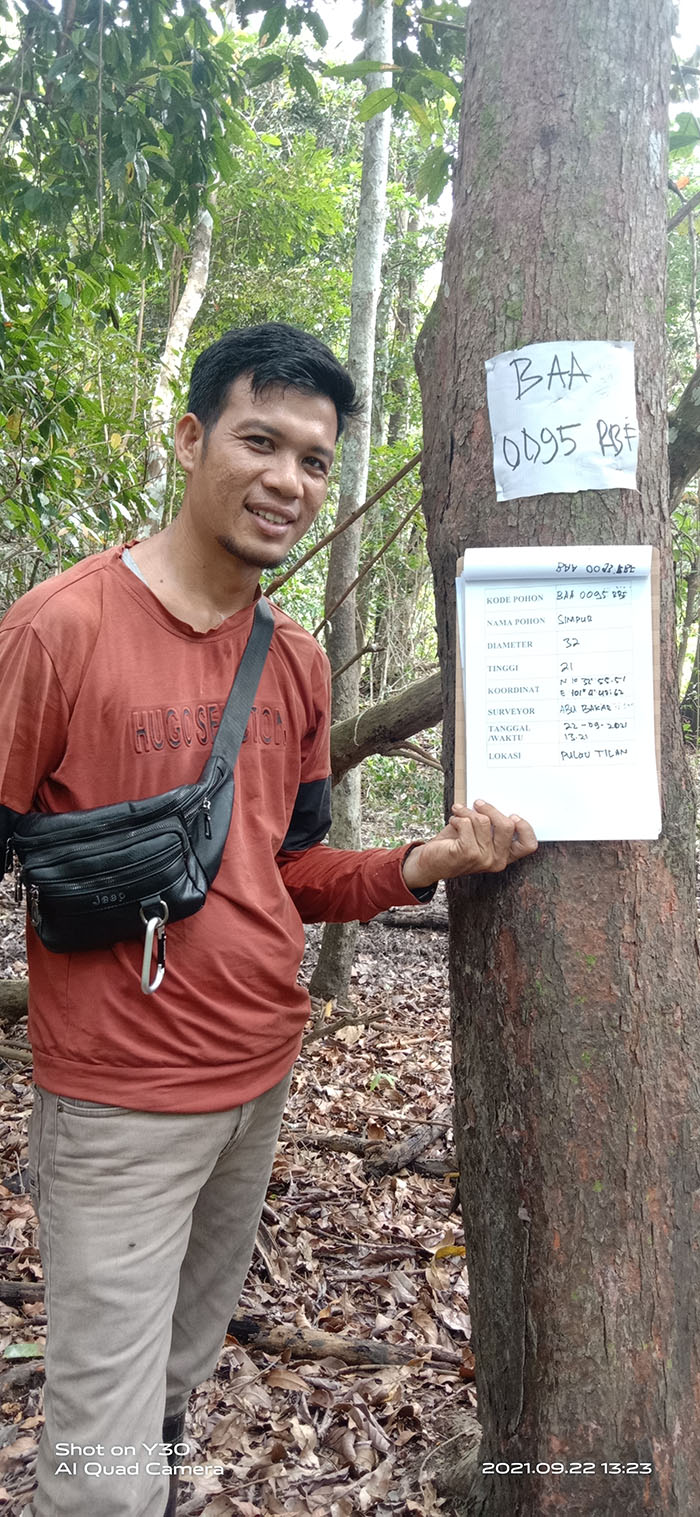 BAA
0095 RBF
KODE POHON BAA 0095 RBF
NAMA POHON SIMPUR
DIAMETER 32
TINGGI 21
KOORDINAT N 1° 35' 55.51 E 101° 9' 43.62
SURVEYOR ABU BAKAR
TANGGAL /WAKTU 22-09-2021 13.21
LOKASI PULOU TILAN
HUGO
Jeep
Shot on Y30
AI Quad Camera
2021.09.22 13:23